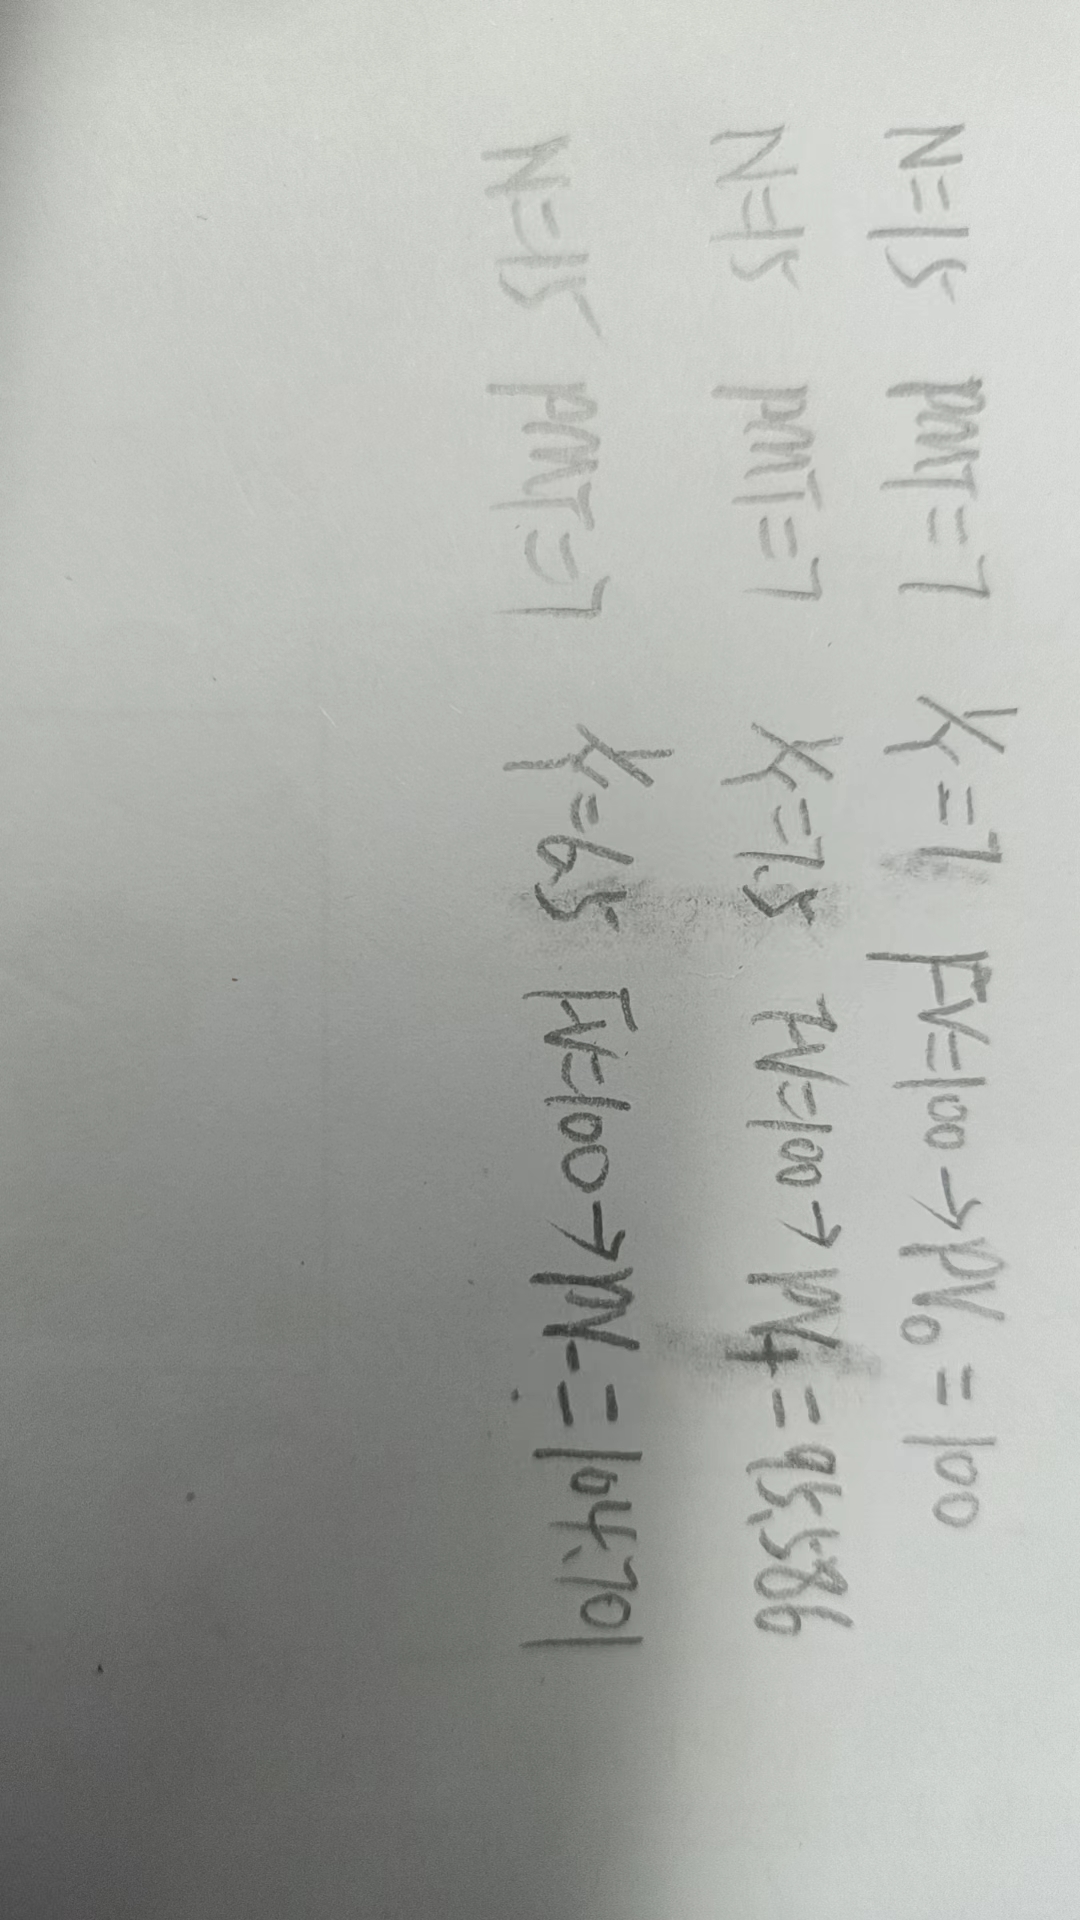 N=15 PMT=7 I/Y=7 FV=100→PV0=100
N=15 PMT=7 I/Y=7.5 FV=100→PV+=95.586
N=15 PMT=7 I/Y=6.5 FV=100→PV-=104.701